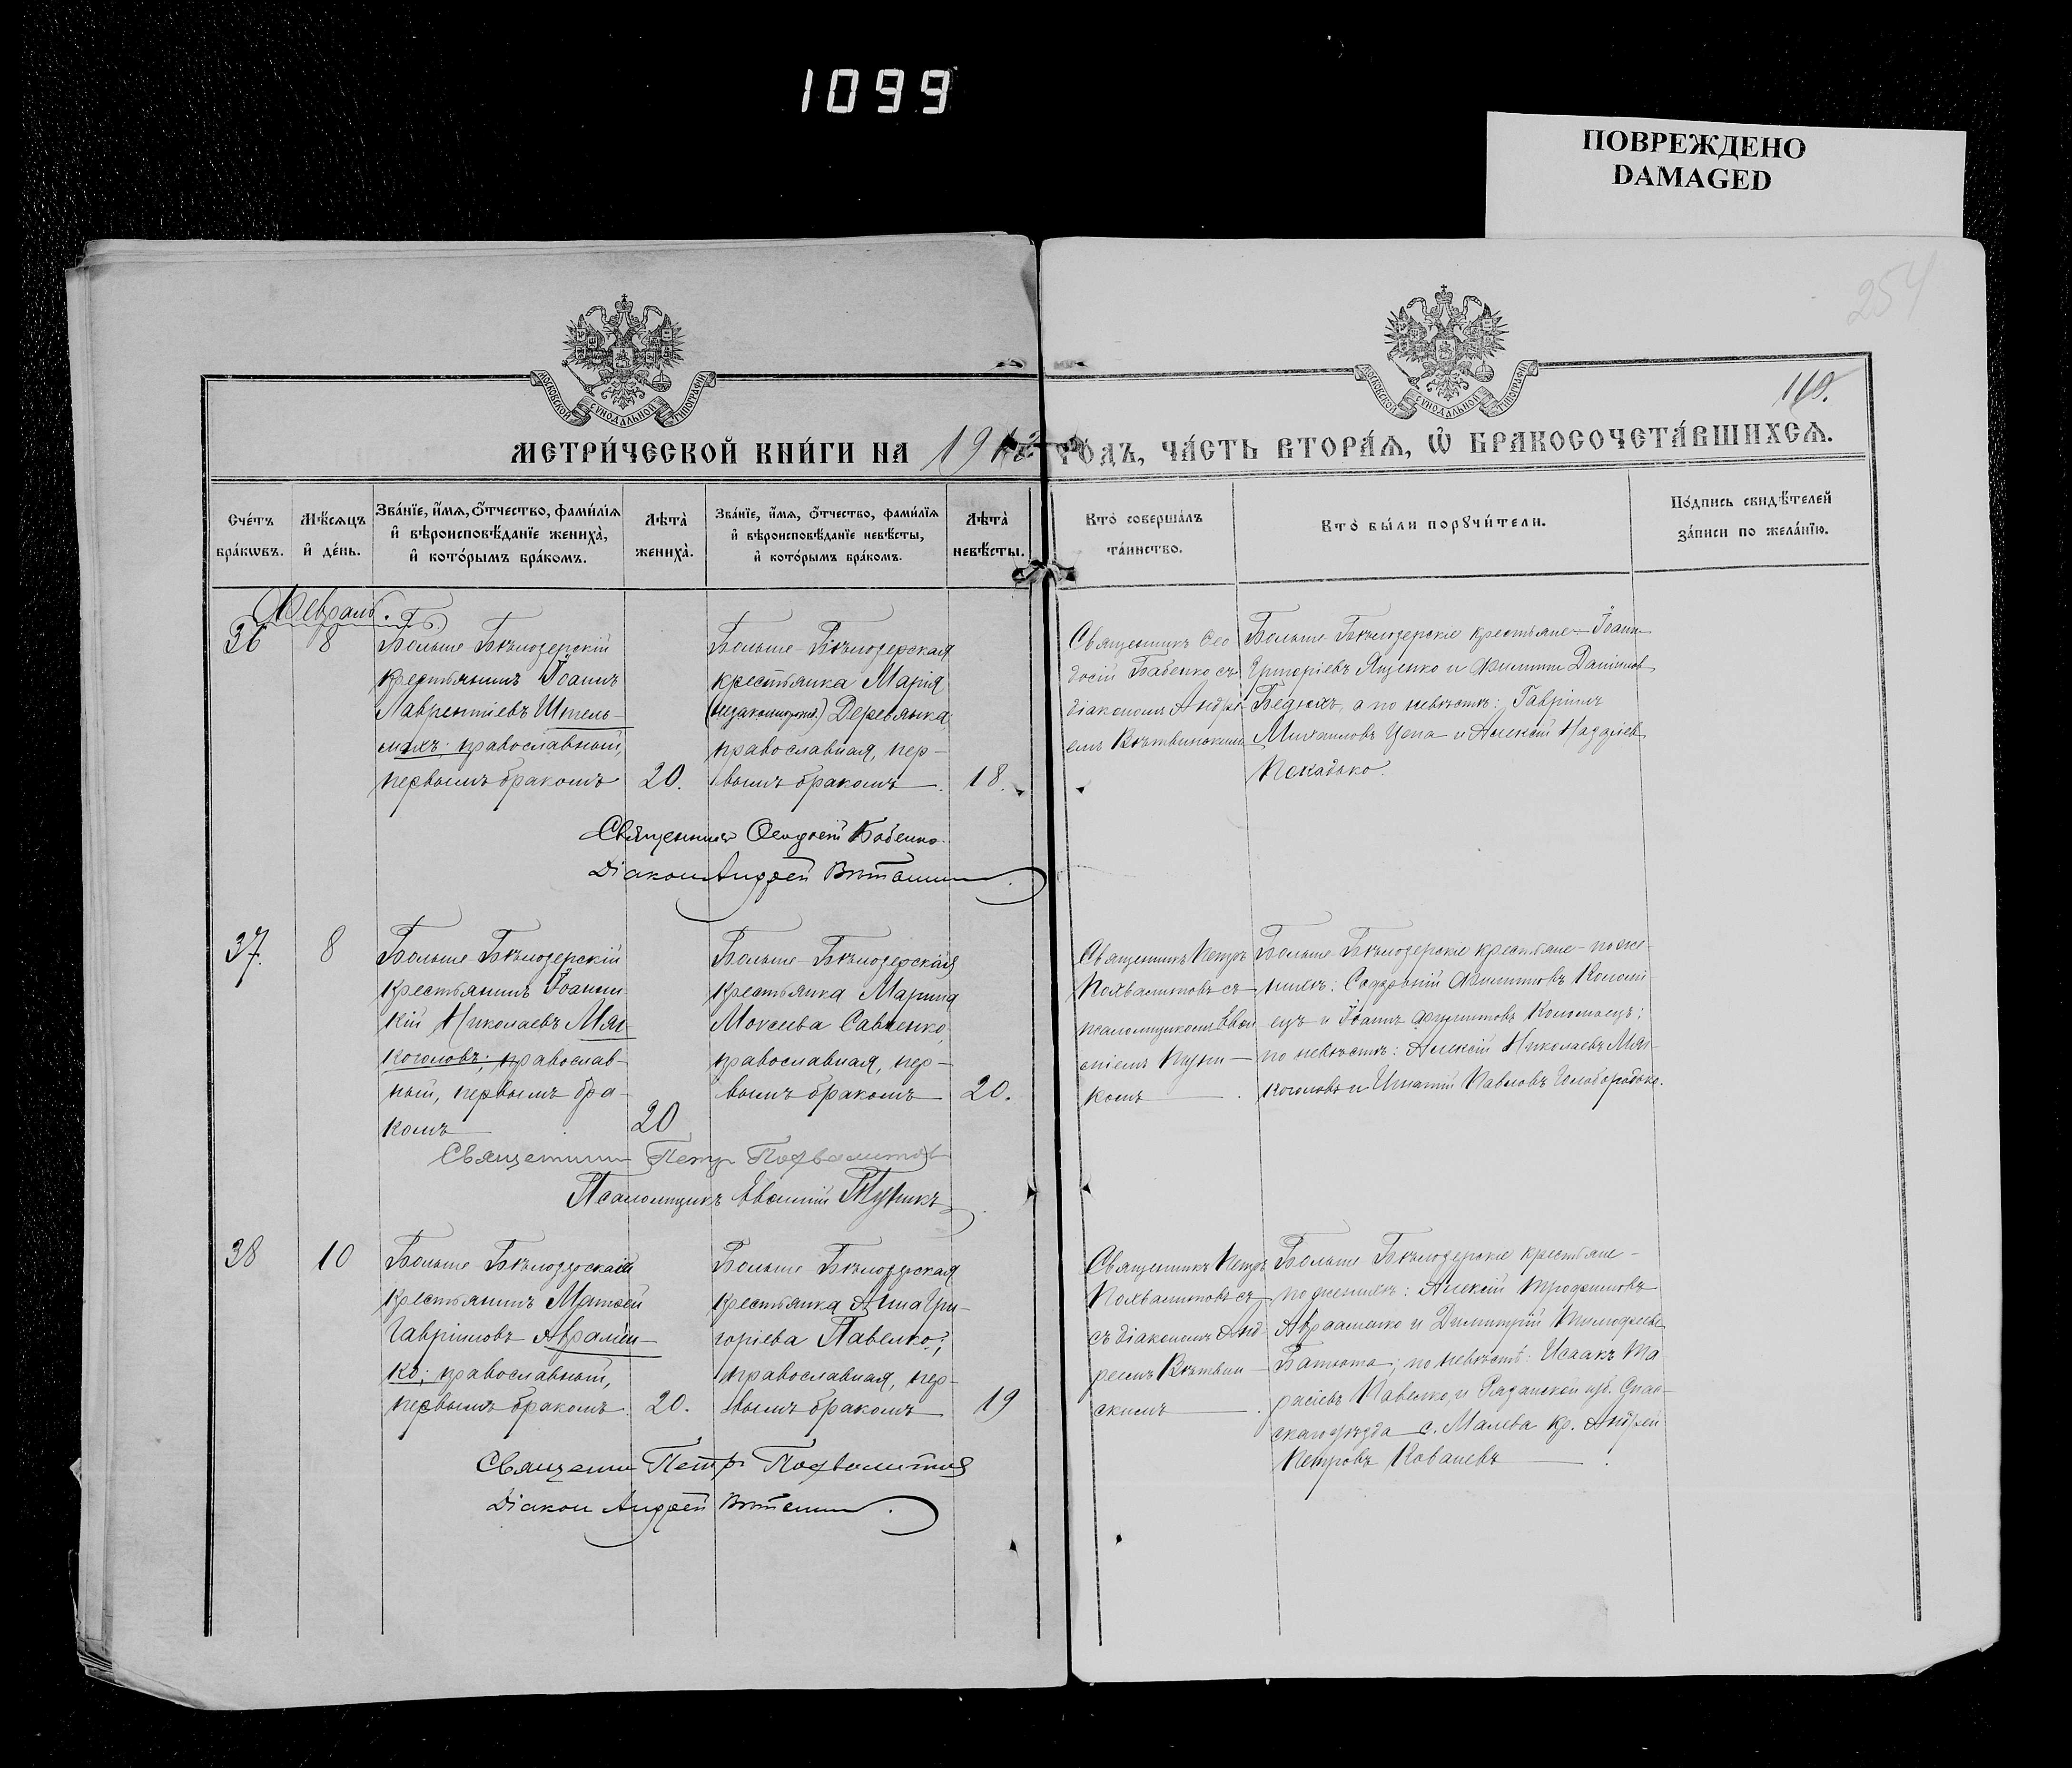 1099
ПОВРЕЖДЕНО
DAMAGED
254
МОСКОВСКОЙ СѴНОДАЛЬНОЙ ТИПОГРАФІИ
МОСКОВСКОЙ СѴНОДАЛЬНОЙ ТИПОГРАФІИ
110.
МЕТРИ́ЧЕСКОЙ КНИ́ГИ НА 191
ГОДЪ, ЧА́СТЬ ВТОРА́Я, Ѡ БРАКОСОЧЕТА́ВШИХСЯ.
Сче́тъ бра́кѡвъ.
Мѣ́сяцъ и де́нь.
Зва́нїе, и́мя, ѻ́тчество, фами́лїя и вѣроисповѣ́данїе жениха̀, и кото́рымъ бра́комъ.
Лѣта̀ жениха̀.
Зва́нїе, и́мя, ѻ́тчество, фами́лїя и вѣроисповѣ́данїе невѣ́сты, и кото́рымъ бра́комъ.
Лѣта̀ невѣ́сты.
Кто̀ соверша́лъ та́инство.
Кто̀ бы́ли порꙋчи́тели.
По́дпись свидѣ́телей за́писи по жела́нїю.
Февраль.
36
8
Больше Бѣлозерскій
крестьянинъ Іоаннъ
Лаврентіевъ Штель-
махъ; православный,
первымъ бракомъ
20.
Больше-Бѣлозерская
крестьянка Марія
(незаконнорожд.) Деревянка,
православная, пер-
вымъ бракомъ
18.
Священникъ Ѳео
досій Бабенко съ
діакономъ Андре-
емъ Вѣтвинскимъ
Больше Бѣлозерскіе крестьяне - Іоаннъ
Григоріевъ Яценко и Филиппъ Даніиловъ
а по невѣстѣ: Гавріилъ
Михаиловъ Цепа и Алексій
Священникъ Ѳеодосій Бабенко.
Діаконъ Андрей
37.
8
Больше Бѣлозерскій
крестьянинъ Іоанни-
кій Николаевъ Мяг-
коголовъ; православ-
ный, первымъ бра-
комъ
20
Больше-Бѣлозерская
крестьянка Марина
Моисеева Савченко,
православная, пер-
вымъ бракомъ
20.
Священникъ Петръ
Похвалитовъ съ
псаломщикомъ Евѳи
міемъ
комъ
Больше Бѣлозерскіе крестьяне - по же-
нихѣ: Филипповъ Коломі-
ецъ и Іоаннъ Филипповъ Коломоецъ;
по невѣстѣ: Алексій Николаевъ Мяг-
коголовъ и Игнатій Павловъ Голобородько.
Священникъ Петръ Похвалитовъ
Псаломщикъ Евѳимій
38
10
Больше Бѣлозерскій
крестьянинъ Матѳей
Гавріиловъ Авраменко-
ко; православный,
первымъ бракомъ
20.
Больше Бѣлозерская
крестьянка Анна Гри-
горіева Павелко;
православная, пер-
вымъ бракомъ
19
Священникъ Петръ
Похвалитовъ съ
съ діакономъ Анд-
реемъ Вѣтвин-
скимъ
Больше Бѣлозерскіе крестьяне -
по женихѣ: Алексій Трофимовъ
Авраменко и Димитрій Тимофеевъ
Батюта; по невѣстѣ: Исаакъ Та
расіевъ Павелко, и Рязанской губ. Спас-
скаго уѣзда с. Малева кр. Андрей
Петровъ Ковалевъ
Священникъ Петръ Похвалитовъ
Діаконъ Андрей